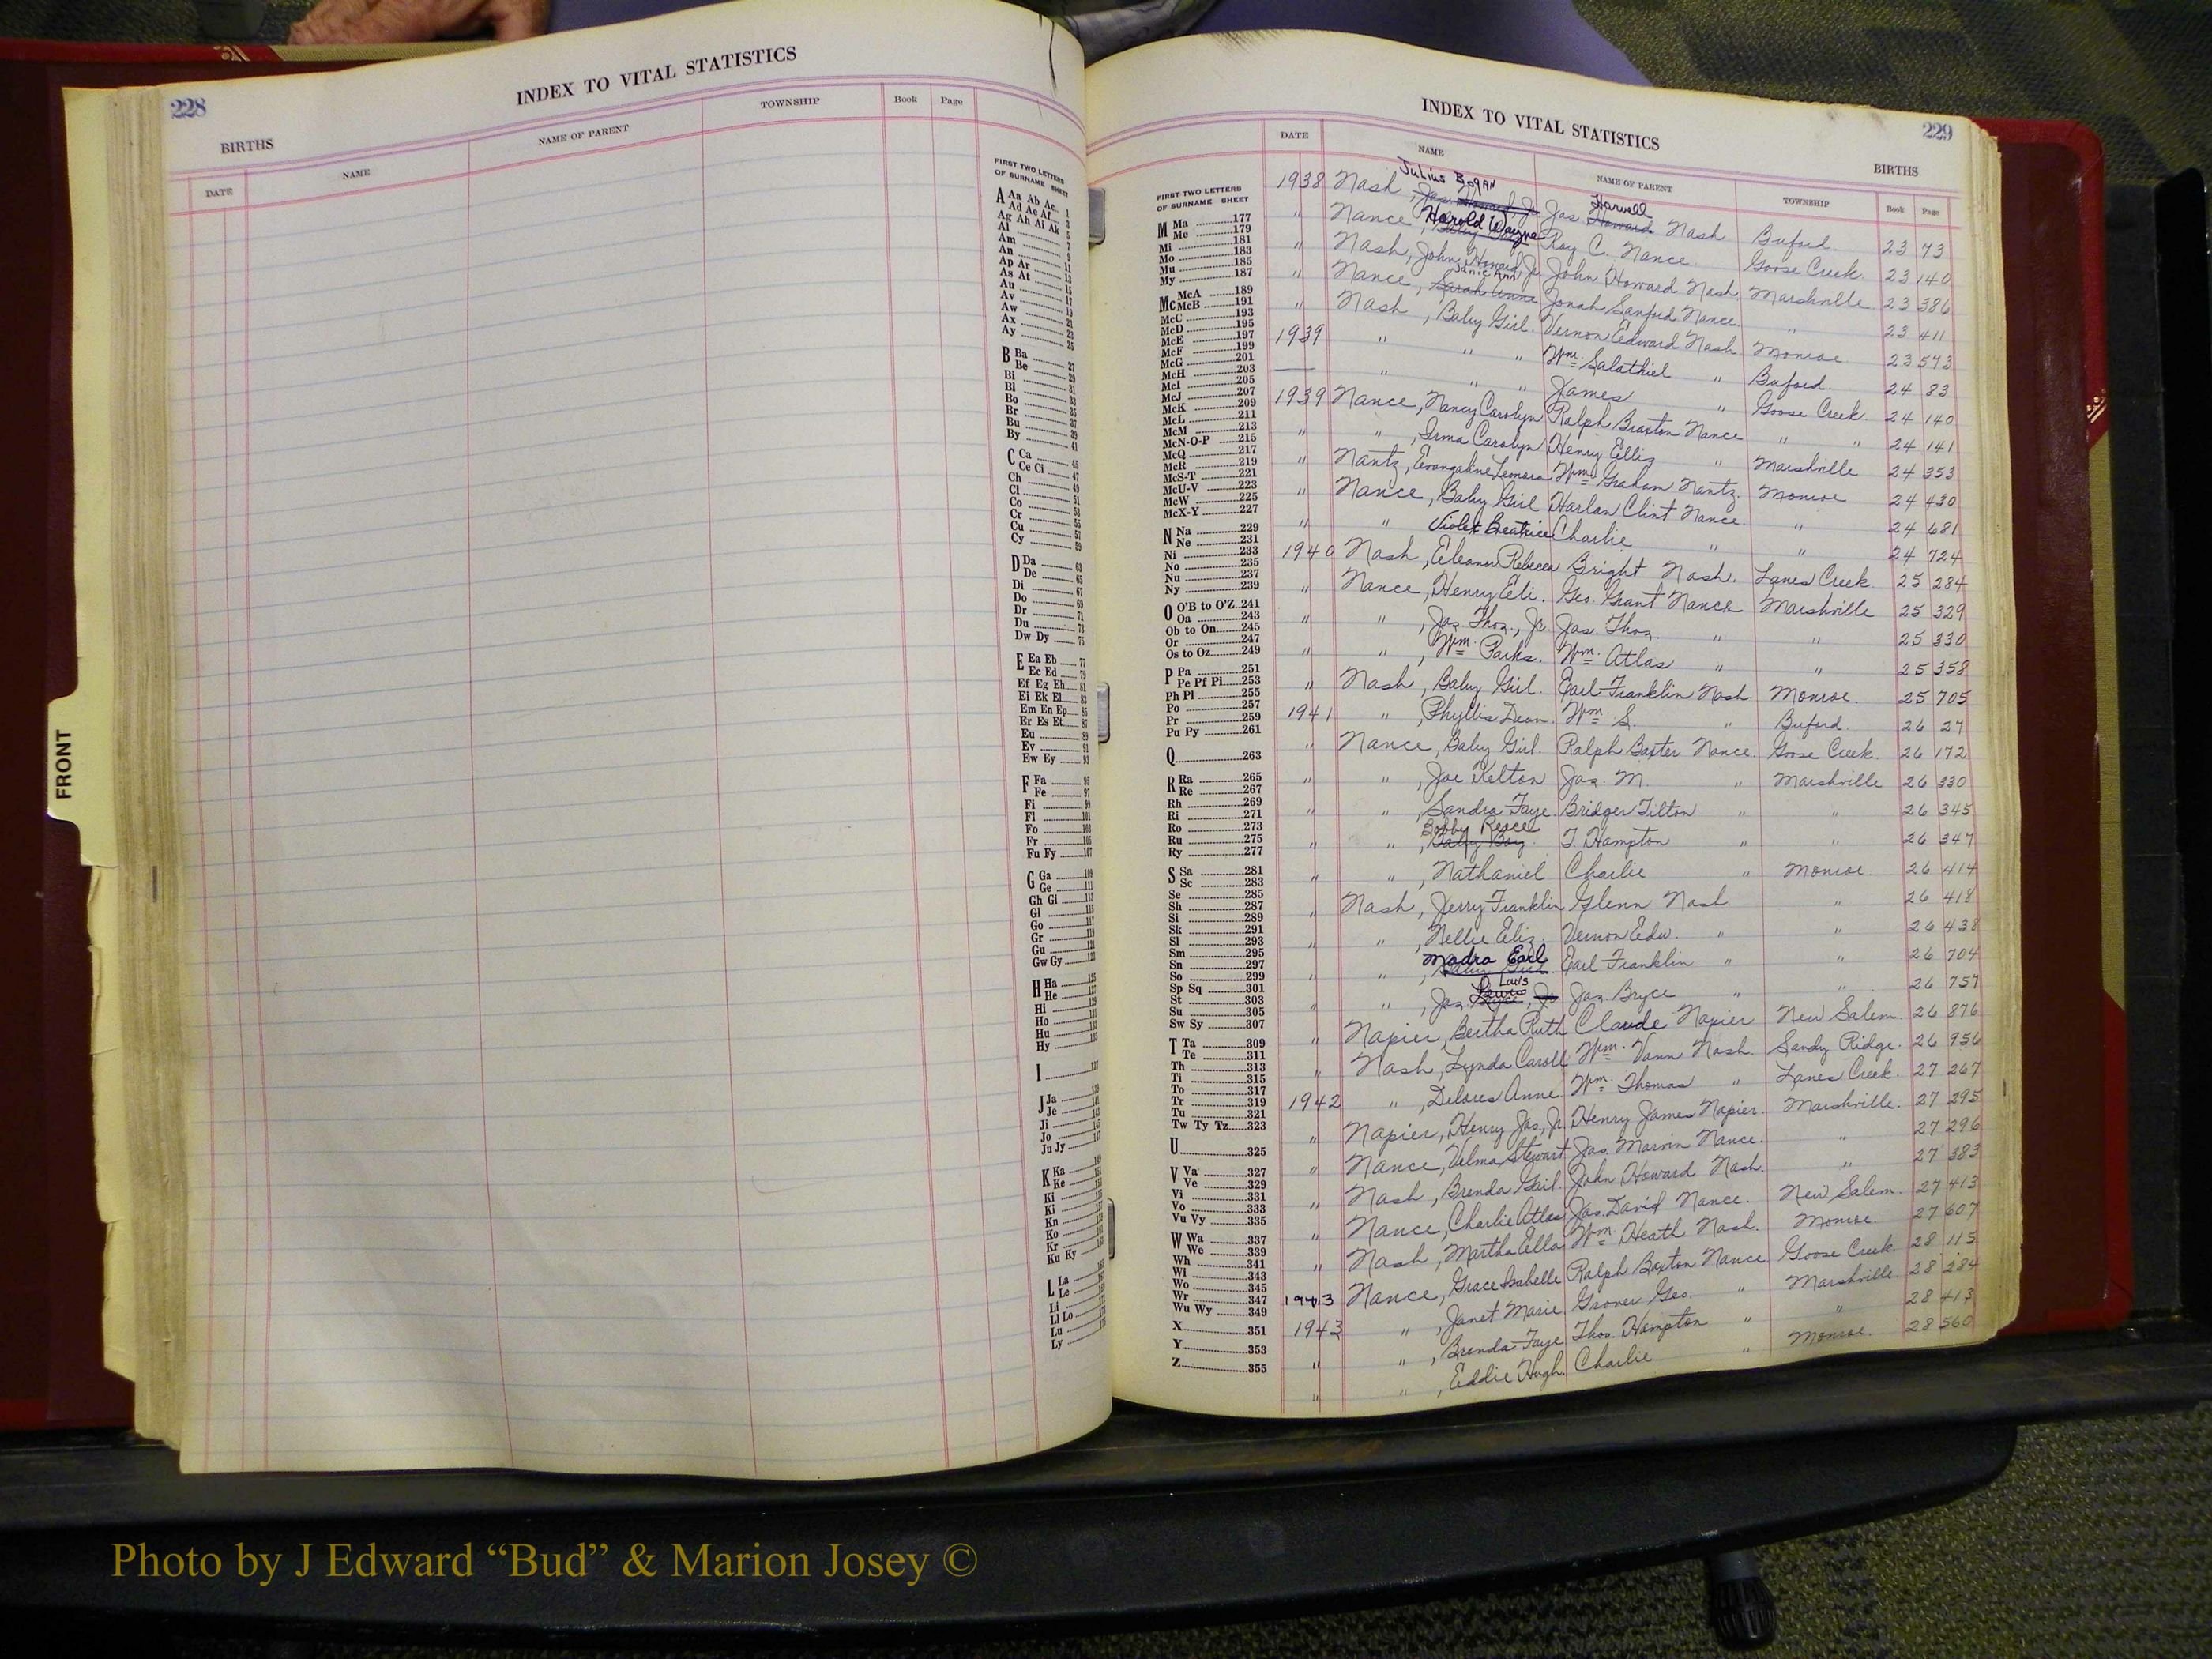 228
INDEX TO VITAL STATISTICS
BIRTHS
DATE NAME NAME OF PARENT TOWNSHIP Book Page
FIRST TWO LETTERS
OF SURNAME SHEET
A Aa Ab Ac 1
Ad Ae Af
Ag Ah Ai Ak
Al
Am
An
Ap Ar 11
As At 13
Au 15
Av 17
Aw 19
Ax 21
Ay 23
B Ba 27
Be 29
Bi
Bl
Bo
Br
Bu
By 41
C Ca 45
Ce Ci 47
Ch 49
Cl 51
Co 53
Cr 55
Cu 57
Cy 59
D Da 63
De 65
Di 67
Do 69
Dr 71
Du 73
Dw Dy 75
E Ea Eb 77
Ec Ed 79
Ef Eg Eh 81
Ei Ek El 83
Em En Ep 85
Er Es Et 87
Eu 89
Ev 91
Ew Ey 93
F Fa 95
Fe 97
Fi 99
Fl 101
Fo 103
Fr 105
Fu Fy 107
G Ga 109
Ge 111
Gh Gi 113
Gl 115
Go 117
Gr 119
Gu 121
Gw Gy 123
H Ha 125
He
Hi
Ho
Hu
Hy
I 137
J Ja
Je
Ji
Jo
Ju Jy
K Ka
Ke
Ki
Ki
Kn
Ko
Kr
Ku Ky
L La
Le
Li
Ll Lo
Lu
Ly
FRONT
INDEX TO VITAL STATISTICS
229
BIRTHS
DATE NAME NAME OF PARENT TOWNSHIP Book Page
FIRST TWO LETTERS
OF SURNAME SHEET
M Ma 177
Me 179
Mi 181
Mo 183
Mu 185
My 187
Mc McA 189
McB 191
McC 193
McD 195
McE 197
McF 199
McG 201
McH 203
McI 205
McJ 207
McK 209
McL 211
McM 213
McN-O-P 215
McQ 217
McR 219
McS-T 221
McU-V 223
McW 225
McX-Y 227
N Na 229
Ne 231
Ni 233
No 235
Nu 237
Ny 239
O O'B to O'Z 241
Oa 243
Ob to On 245
Or 247
Os to Oz 249
P Pa 251
Pe Pf Pi 253
Ph Pl 255
Po 257
Pr 259
Pu Py 261
Q 263
R Ra 265
Re 267
Rh 269
Ri 271
Ro 273
Ru 275
Ry 277
S Sa 281
Sc 283
Se 285
Sh 287
Si 289
Sk 291
Sl 293
Sm 295
Sn 297
So 299
Sp Sq 301
St 303
Su 305
Sw Sy 307
T Ta 309
Te 311
Th 313
Ti 315
To 317
Tr 319
Tu 321
Tw Ty Tz 323
U 325
V Va 327
Ve 329
Vi 331
Vo 333
Vu Vy 335
W Wa 337
We 339
Wh 341
Wi 343
Wo 345
Wr 347
Wu Wy 349
X 351
Y 353
Z 355
Julius Bogan Harvell
1938 Nash, Jas. Howard, Jr. Jas. Howard Nash Buford 23 73
" Nance, Harold Wayne Roy C. Nance Goose Creek 23 140
" Nash, John Howard, Jr. John Howard Nash Marshville 23 386
Janie Ann
" Nance, Sarah Anne Jonah Sanford Nance " 23 411
" Nash, Baby Girl. Vernon Edward Nash Monroe 23 573
1939 " " " Wm. Salathiel " Buford. 24 83
" " " James " Goose Creek 24 140
1939 Nance, Nancy Carolyn Ralph Braxton Nance " " 24 141
" " , Irma Carolyn Henry Ellis " Marshville 24 353
" Nantz, Evangaline Leonora Wm. Graham Nantz. Monroe 24 430
" Nance, Baby Girl Harlan Clint Nance " 24 681
" " Violet Beatrice Charlie " " 24 724
1940 Nash, Eleanor Rebecca Bright Nash. Lanes Creek 25 284
" Nance, Henry Eli. Geo. Grant Nance Marshville 25 329
" " , Jas. Thos., Jr. Jas. Thos. " " 25 330
" " , Wm. Parks. Wm. Atlas " " 25 358
" Nash, Baby Girl. Earl Franklin Nash Monroe. 25 705
1941 " , Phyllis Dean. Wm. S. " Buford. 26 27
" Nance, Baby Girl. Ralph Baxter Nance Goose Creek. 26 172
" " , Joe Kelton Jas. M. " Marshville 26 330
" " , Sandra Faye Bridger Tilton " " 26 345
Bobby Reece
" " , Baby Boy. T. Hampton " " 26 347
" " , Nathaniel Charlie " Monroe 26 414
" Nash, Jerry Franklin Glenn Nash " 26 418
" " , Nellie Eliz. Vernon Edw. " " 26 438
Madra Earl
" " , Baby Girl Earl Franklin " " 26 704
Lewis
" " , Jas. Bryce, Jr. Jas. Bryce " " 26 757
" Napier, Bertha Ruth Claude Napier New Salem. 26 876
" Nash, Lynda Caroll Wm. Vann Nash. Sandy Ridge. 26 956
1942 " , Delores Anne. Wm. Thomas " Lanes Creek. 27 267
" Napier, Henry Jas., Jr. Henry James Napier. Marshville. 27 295
" Nance, Velma Stewart Jas. Marvin Nance. " 27 296
" Nash, Brenda Gail. John Howard Nash. " 27 383
" Nance, Charlie Atlas Jas. David Nance. New Salem. 27 413
" Nash, Martha Ella Wm. Heath Nash. Monroe. 27 607
1943 Nance, Grace Isabelle Ralph Baxton Nance Goose Creek 28 115
1943 " , Janet Marie Grover Geo. " Marshville 28 284
" " , Brenda Faye Thos. Hampton " " 28 413
" " , Eddie Hugh. Charlie " Monroe. 28 560
Photo by J Edward “Bud” & Marion Josey ©